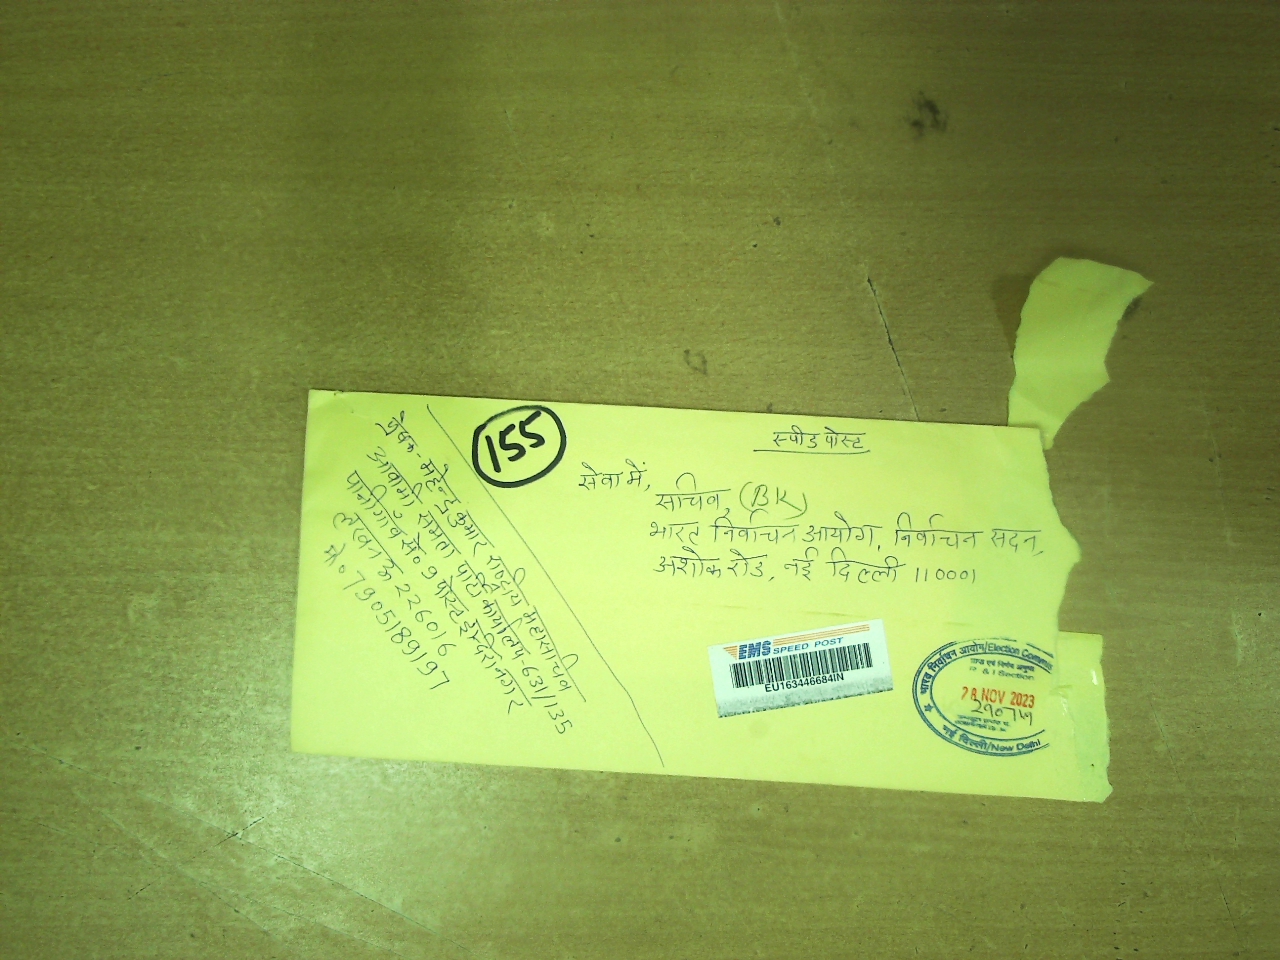 155
स्पीड पोस्ट
सेवा में,
सचिव, (BK)
भारत निर्वाचन आयोग, निर्वाचन सदन,
अशोक रोड, नई दिल्ली 110001
प्रेषक - महेन्द्र कुमार राष्ट्रीय महासचिव
आवामी समता पार्टी कार्यालय - 631/135
पानीगाँव से० 9 पोस्ट इन्दिरा नगर
लखनऊ 226016
मो० 7905189197
EMS SPEED POST
EU163446684IN
भारत निर्वाचन आयोग/Election
& I Section
28 NOV 2023
नई दिल्ली/New Delhi